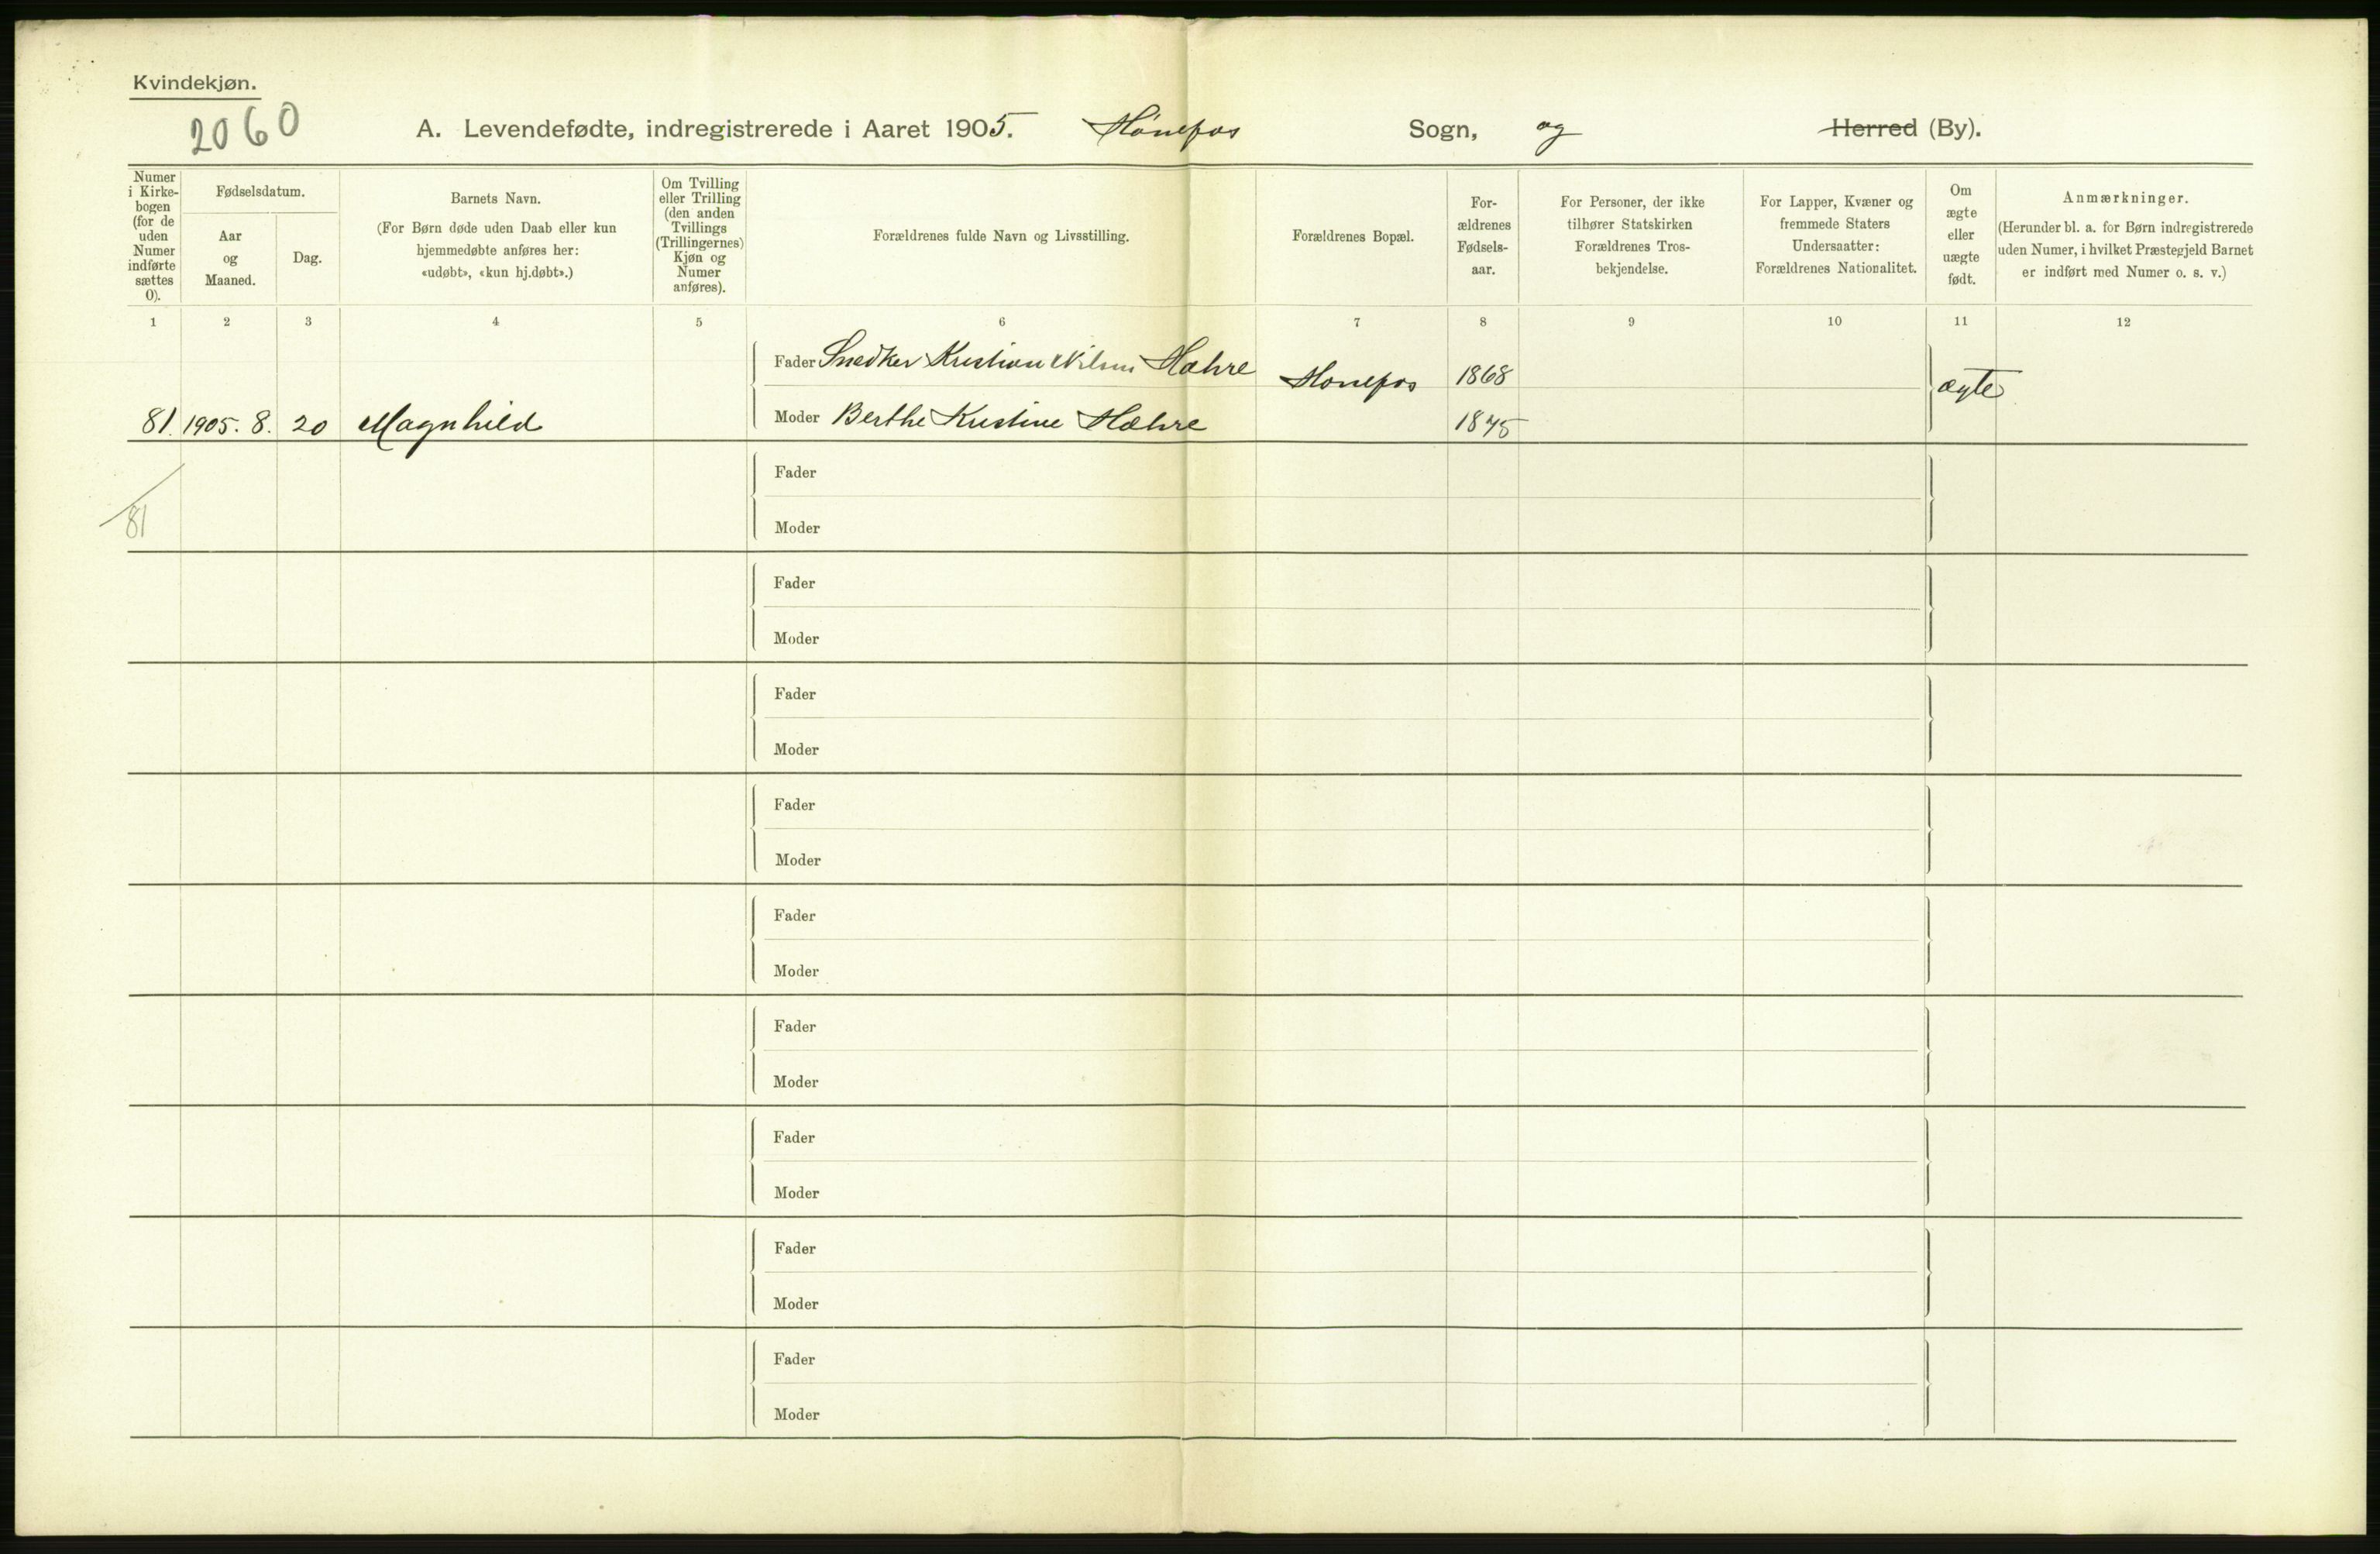 Kvindekjøn.
2060
A. Levendefødte, indregistrerede i Aaret 1905. Hønefos Sogn, og Herred (By).
Numer i Kirke-bogen (for de uden Numer indførte sættes 0).
Fødselsdatum.
Aar og Maaned.
Dag.
Barnets Navn.
(For Børn døde uden Daab eller kun
hjemmedøbte anføres her:
«udøbt», «kun hj.døbt».)
Om Tvilling
eller Trilling
(den anden
Tvillings
(Trillingernes)
Kjøn og
Numer
anføres).
Forældrenes fulde Navn og Livsstilling.
Forældrenes Bopæl.
For-
ældrenes
Fødsels-
aar.
For Personer, der ikke
tilhører Statskirken
Forældrenes Tros-
bekjendelse.
For Lapper, Kvæner og
fremmede Staters
Undersaatter:
Forældrenes Nationalitet.
Om
ægte
eller
uægte
født.
Anmærkninger.
(Herunder bl. a. for Børn indregistrerede
uden Numer, i hvilket Præstegjeld Barnet
er indført med Numer o. s. v.)
1 2 3 4 5 6 7 8 9 10 11 12
Fader Snedker Kristian Nilsen Hæhre Hønefos 1868 ægte
81. 1905. 8. 20 Magnhild Moder Berthe Kristine Hæhre 1875
Fader
81 Moder
Fader
Moder
Fader
Moder
Fader
Moder
Fader
Moder
Fader
Moder
Fader
Moder
Fader
Moder
Fader
Moder